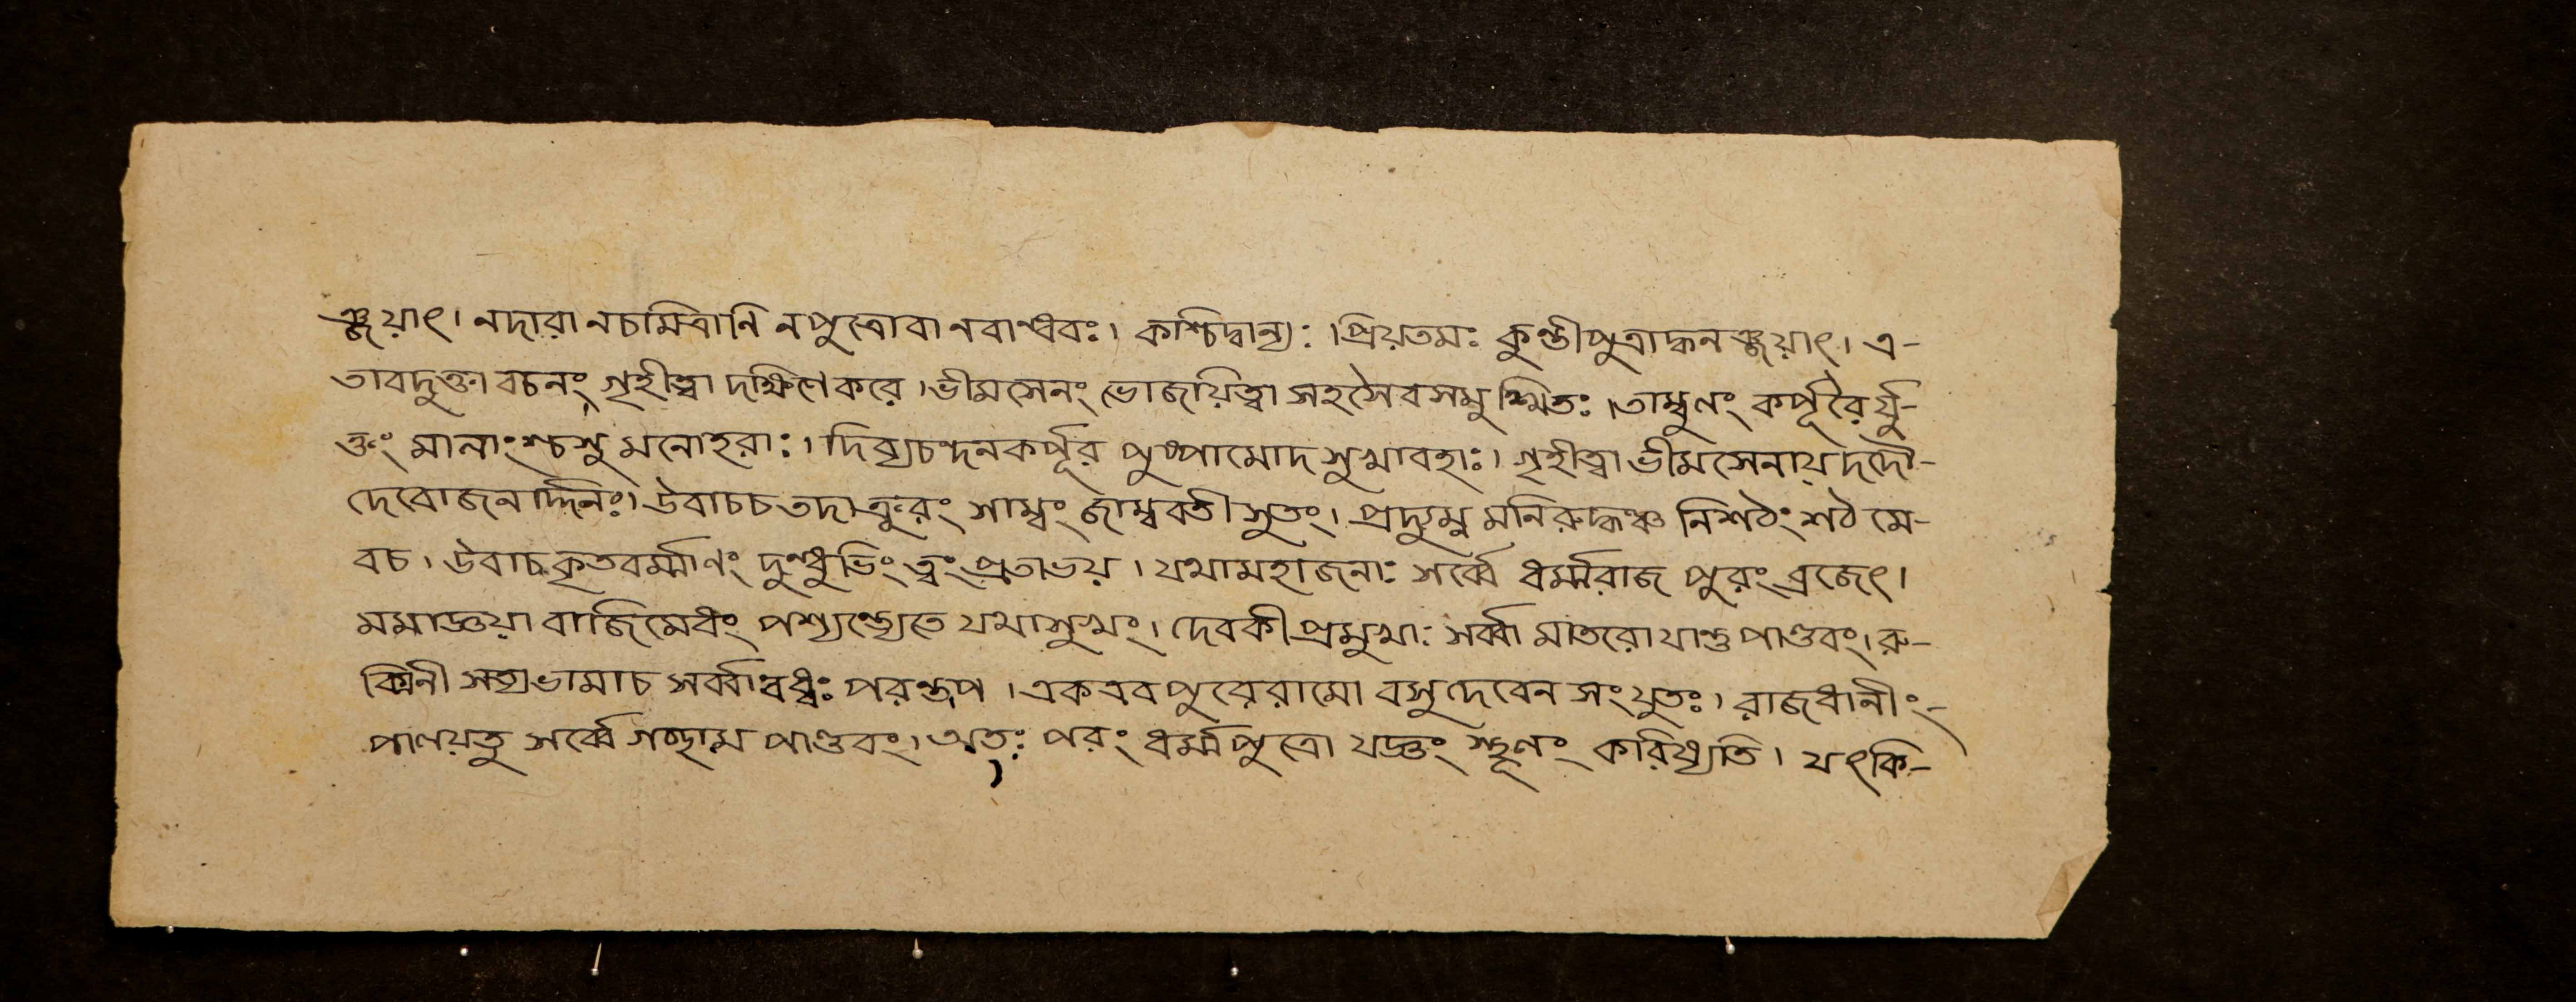 ঞ্জয়াৎ। নদারা নচমিত্রানি নপুত্রোবা নবান্ধবঃ। কশ্চিদ্বান্যঃ। প্রিয়তমঃ কুন্তীপুত্রাদ্ধনঞ্জয়াৎ। এ-
তাবদুক্তা বচনং গৃহীত্বা দক্ষিণেকরে। ভীমসেনং ভোজয়িত্বা সহসৈবসমুস্মিতঃ। তাম্বুণং কর্পূরৈর্যু-
ক্তং মালাংশ্চশু মনোহরাঃ। দিব্যচন্দনকর্পূর পুষ্পামোদ সুখাবহাঃ। গৃহীত্বা ভীমসেনায় দদৌ-
দেবোজনার্দ্দনঃ। উবাচচ তদাক্রূরং শাম্বং জাম্ববতীসুতং। প্রদ্যুম্ন মনিরুদ্ধঞ্চ নিশঠং শঠ মে-
বচ। উবাচ কৃতবর্ম্মাণং দুন্ধুভিং ত্বং প্রতাভয়। যথামহাজনাঃ সর্ব্বে ধর্ম্মরাজ পুরং ব্রজেৎ।
মমাজ্ঞয়া বাজিমেধং পশ্যন্ত্যেতে যথাসুখং। দেবকীপ্রমুখাঃ সর্ব্বা মাতরো যান্তু পাণ্ডবং। রু-
ক্মিনী সত্যভামাচ সর্ব্বাবধ্বঃ পরন্তপ। একএব পুরেরামো বসুদেবেন সংযুতঃ। রাজধানীং-
পাণয়তু সর্ব্বে গচ্ছাম পাণ্ডবং। অতঃ পরং ধর্ম্মপুত্রো যজ্ঞং স্থূণং করিষ্যতি। যৎকি-